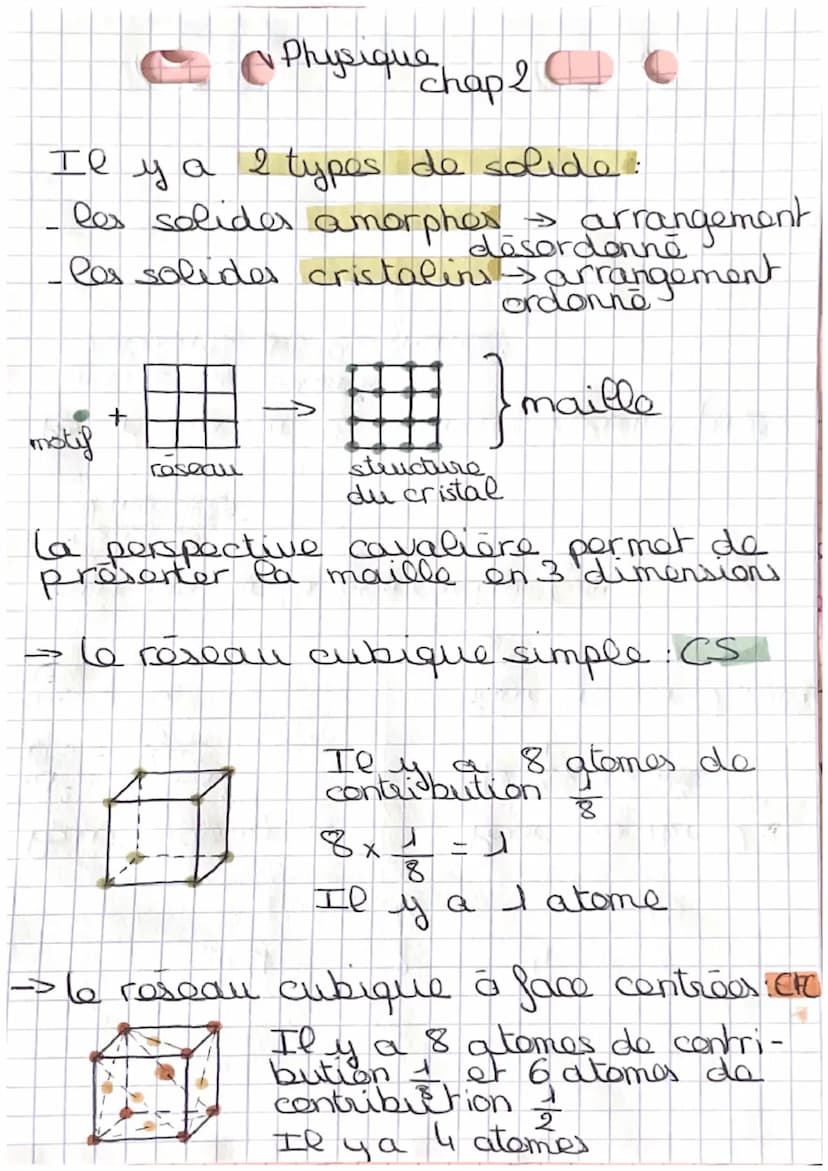 Physique
chap 2
Il y a 2 types de solide :
- les solides amorphes → arrangement
désordonné
- les solides cristalins → arrangement
ordonné
motif + réseau → structure du cristal } maille
La perspective cavalière permet de
présenter la maille en 3 dimensions
→ le réseau cubique simple : CS
Il y a 8 atomes de
contribution 1/8
8 x 1/8 = 1
Il y a 1 atome
→ le réseau cubique à face centrées : CFC
Il y a 8 atomes de contri-
bution 1/8 et 6 atomes de
contribution 1/2
Il y a 4 atomes